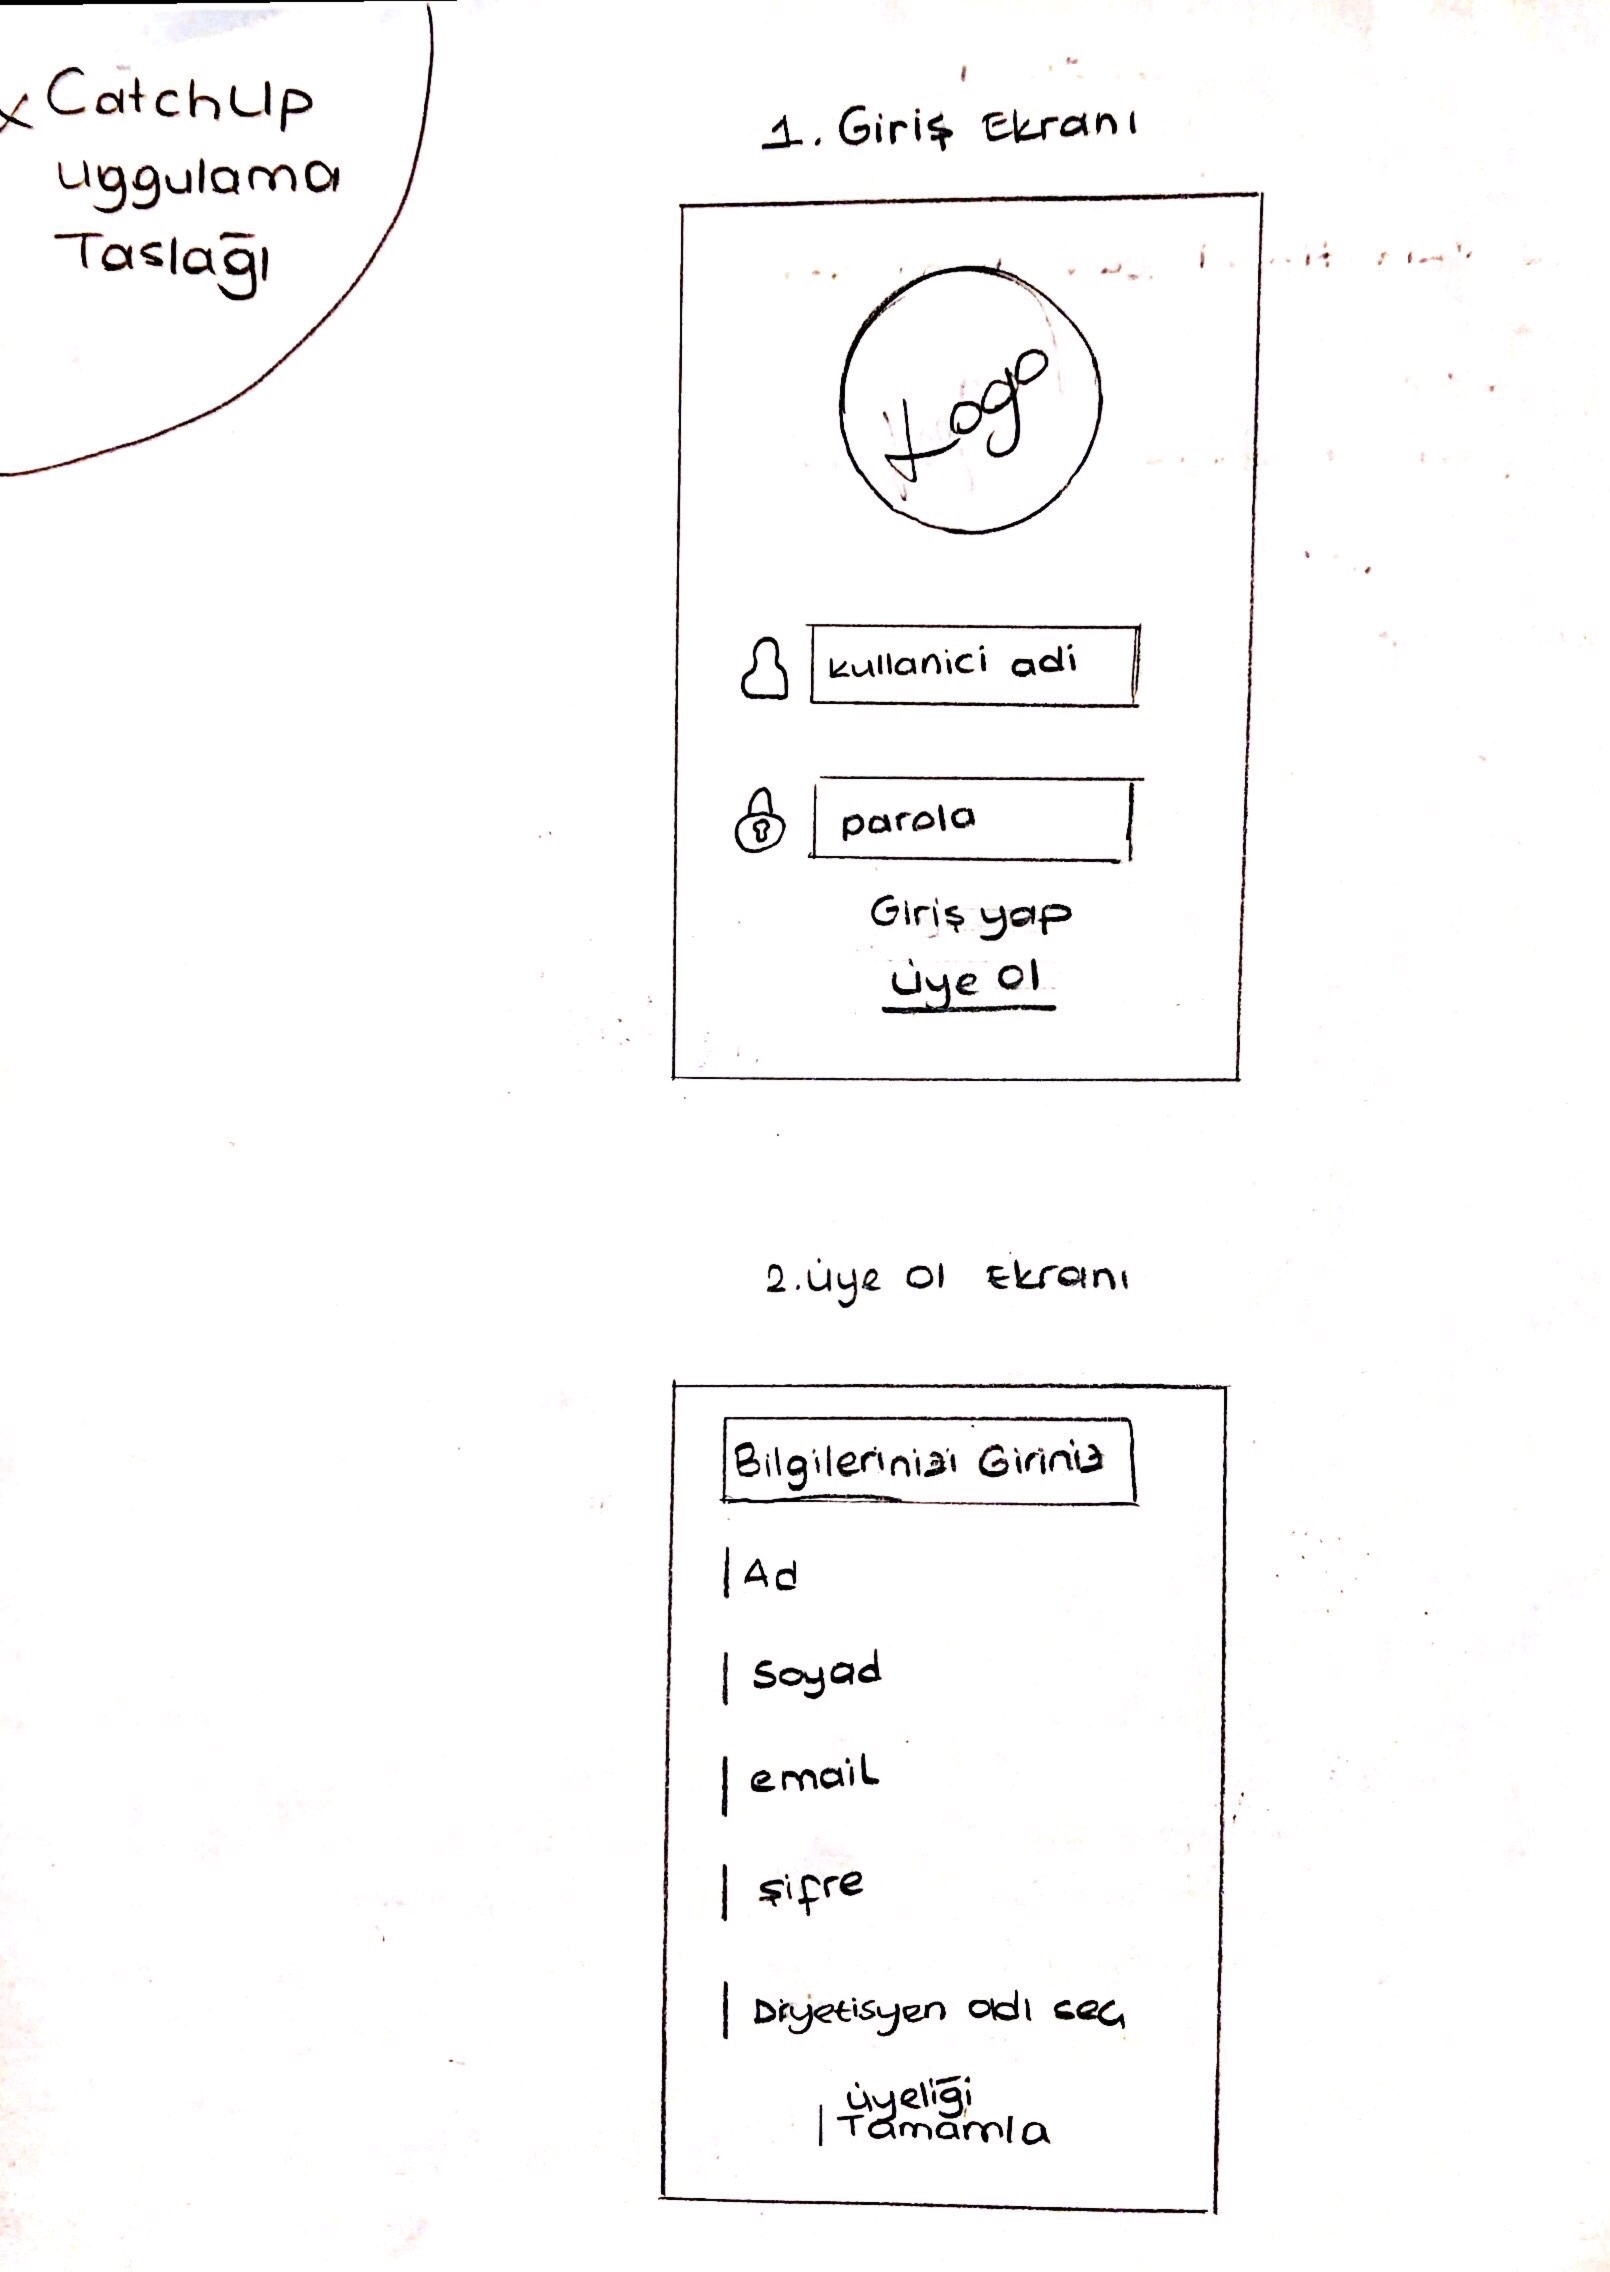 x CatchUp
uygulama
Taslağı
1. Giriş Ekranı
Logo
kullanici adi
parola
Giriş yap
üye ol
2. üye ol Ekranı
Bilgilerinizi Giriniz
Ad
Soyad
email
şifre
Diyetisyen adı seç
üyeliği
Tamamla